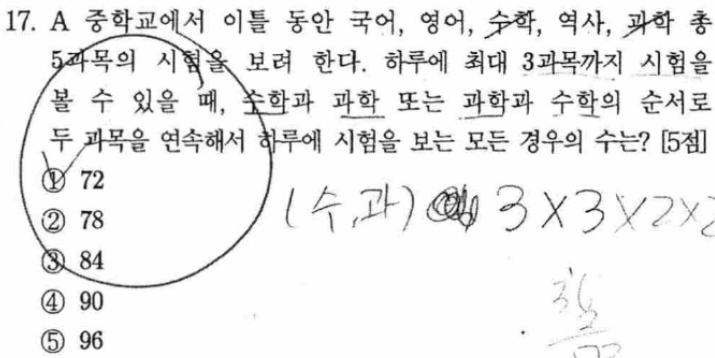 17. A 중학교에서 이틀 동안 국어, 영어, 수학, 역사, 과학 총
5과목의 시험을 보려 한다. 하루에 최대 3과목까지 시험을
볼 수 있을 때, 수학과 과학 또는 과학과 수학의 순서로
두 과목을 연속해서 하루에 시험을 보는 모든 경우의 수는? [5점]
① 72
② 78
(수,과) 3×3×2×2
③ 84
④ 90
⑤ 96